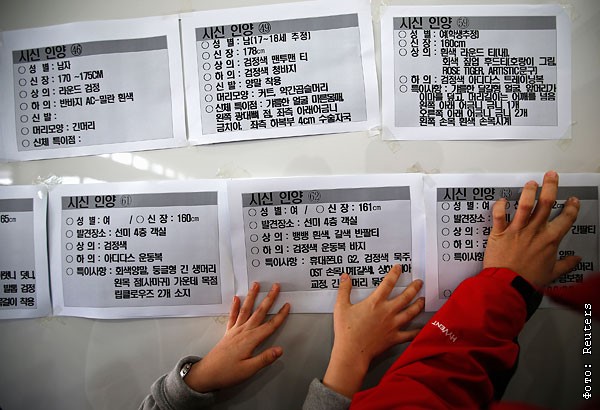 시신 인양 ㊻
○ 성 별 : 남자
○ 신 장 : 170 ~175CM
○ 상 의 : 라운드 검정
○ 하 의 : 반바지 AC-밀란 흰색
○ 신 발 :
○ 머리모양 : 긴머리
○ 신체 특이점 :
시신 인양 ㊾
○ 성 별 : 남(17~18세 추정)
○ 신 장 : 178cm
○ 상 의 : 검정색 맨투맨 티
○ 하 의 : 검정색 청바지
○ 신 발 : 양말 착용
○ 머리모양 : 커트, 약간곱슬머리
○ 신체 특이점 : 갸름한 얼굴 마른몸매
왼쪽 광대뼈 점, 좌측 아래어금니
금치아, 좌측 하복부 4cm 수술자국
시신 인양
○ 성 별 : 여(학생추정)
○ 신 장 : 160cm
○ 상 의 : 흰색 라운드 티(내),
회색 집업 후드티(호랑이 그림,
ROSE TIGER, ARTISTIC문구)
○ 하 의 : 검정색 아디다스 트레이닝복
○ 특이사항 : 갸름한 달걀형 얼굴, 앞머리가
이마를 덮고, 머리길이는 어깨를 넘음
왼쪽 아래 어금니 금니 1개
오른쪽 아래 어금니 금니 2개
왼쪽 손목 흰색 손목시계
65cm
시신 인양 61
○ 성 별 : 여 / ○ 신 장 : 160cm
○ 발견장소 : 선미 4층 객실
○ 상 의 : 검정색
○ 하 의 : 아디다스 운동복
○ 특이사항 : 회색양말, 둥글형 긴 생머리
왼목 점(사마귀) 가운데 목점
립클로우즈 2개 소지
시신 인양 62
○ 성 별 : 여 / ○ 신 장 : 161cm
○ 발견장소 : 선미 4층 객실
○ 상 의 : 뱅뱅 흰색, 갈색 반팔티
○ 하 의 : 검정색 운동복 바지
○ 특이사항 : 휴대폰LG G2, 검정색 묵주,
OST 손목시계(갈색),
교정, 긴머리 묶
시신 인양
○ 성 별 : 여
○ 발견장소
○ 상 의
○ 하 의
○ 특이사항
MYVENT
Фото: Reuters